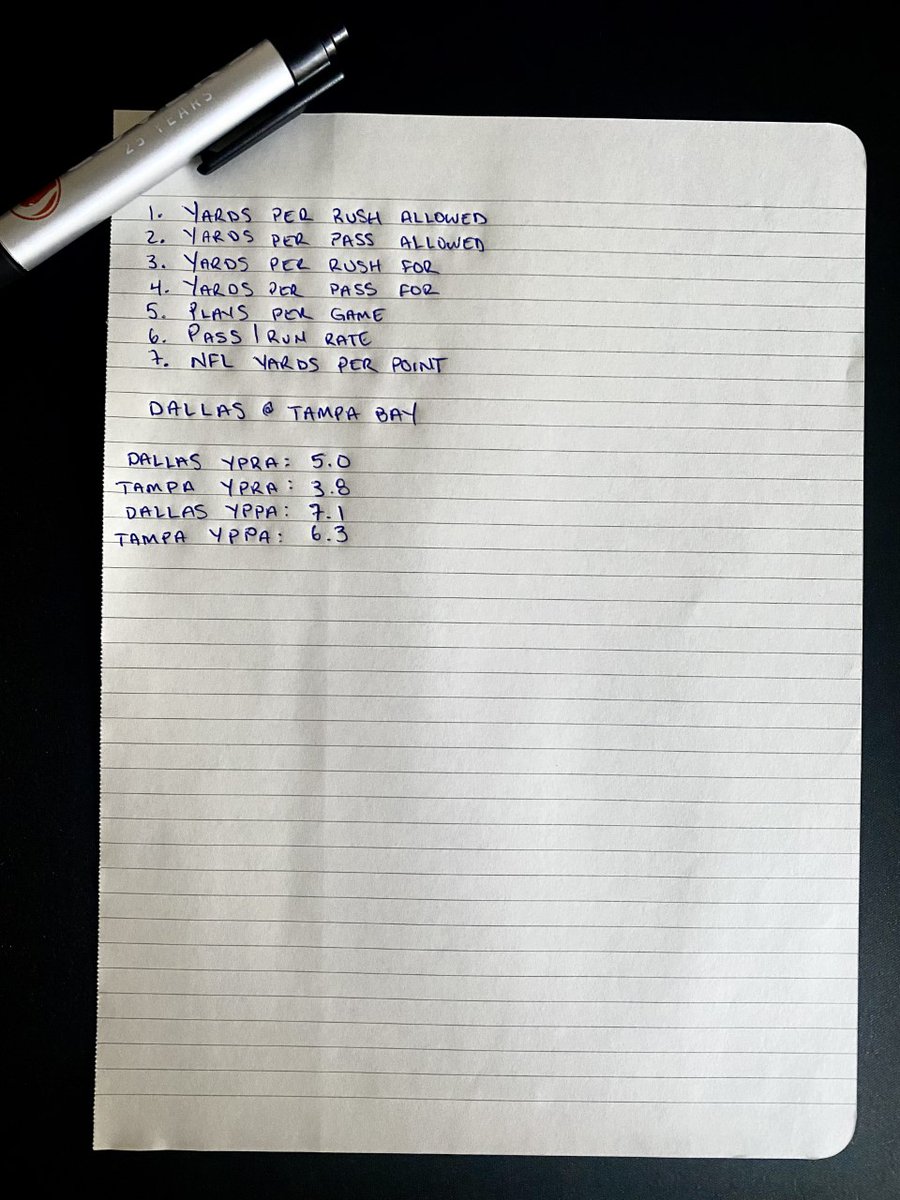 25 YEARS
1. YARDS PER RUSH ALLOWED
2. YARDS PER PASS ALLOWED
3. YARDS PER RUSH FOR
4. YARDS PER PASS FOR
5. PLAYS PER GAME
6. PASS / RUN RATE
7. NFL YARDS PER POINT
DALLAS @ TAMPA BAY
DALLAS YPRA: 5.0
TAMPA YPRA: 3.8
DALLAS YPPA: 7.1
TAMPA YPPA: 6.3